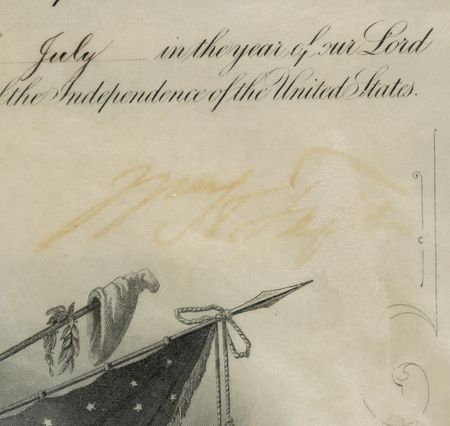 July in the year of our Lord
the Independence of the United States.
Wm H. Taft